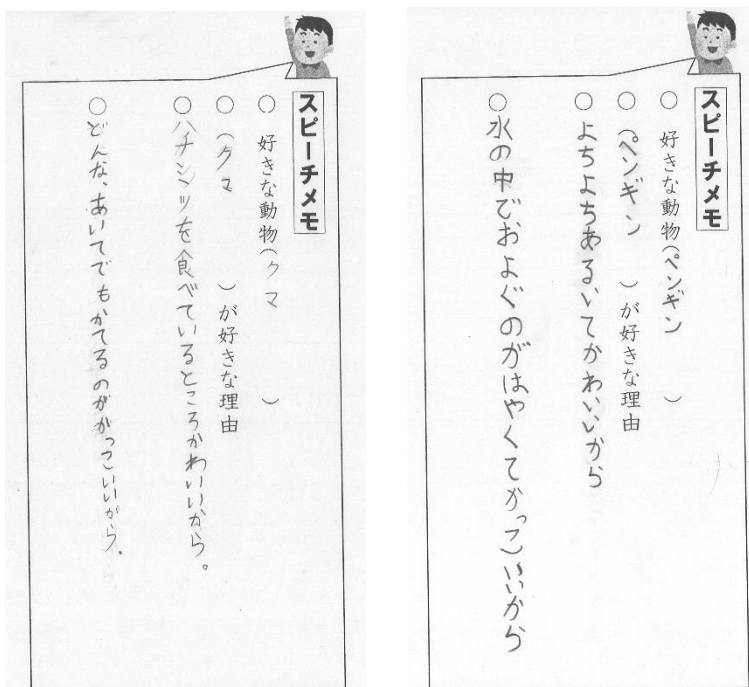 スピーチメモ
○ 好きな動物(クマ)
○ (クマ)が好きな理由
○ハチミツを食べているところかわいいから。
○どんな、あいてでもかてるのがかっこいいから。
スピーチメモ
○ 好きな動物(ペンギン)
○ (ペンギン)が好きな理由
○よちよちあるいてかわいいから
○水の中でおよぐのがはやくてかっこいいから